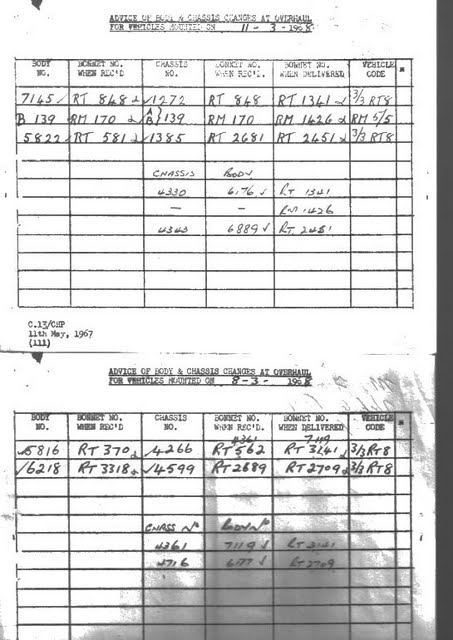 ADVICE OF BODY & CHASSIS CHANGES AT OVERHAUL
FOR VEHICLES MOUNTED ON 11-3-1968
BODY NO. BONNET NO. WHEN REC'D CHASSIS NO. BONNET NO. WHEN REC'D. BONNET NO. WHEN DELIVERED VEHICLE CODE
7145 RT 848 1272 RT 848 RT 1341 3/3 RT8
B 139 RM 170 139 RM 170 RM 1426 RM 5/5
5822 RT 581 1385 RT 2681 RT 2451 3/3 RT8
CHASSIS BODY
4330 6176 RT 1341
— — RM 1426
4343 6889 RT 2451
C.13/CHP
11th May, 1967
(111)
ADVICE OF BODY & CHASSIS CHANGES AT OVERHAUL
FOR VEHICLES MOUNTED ON 8-3-1968
BODY NO. BONNET NO. WHEN REC'D CHASSIS NO. BONNET NO. WHEN REC'D. BONNET NO. WHEN DELIVERED VEHICLE CODE
4361 7119
5816 RT 370 4266 RT 562 RT 3141 3/3 RT8
6218 RT 3318 4599 RT 2689 RT 2709 3/3 RT8
CHASS Nº BODY Nº
4361 7119 RT 3141
4716 6177 RT 2709